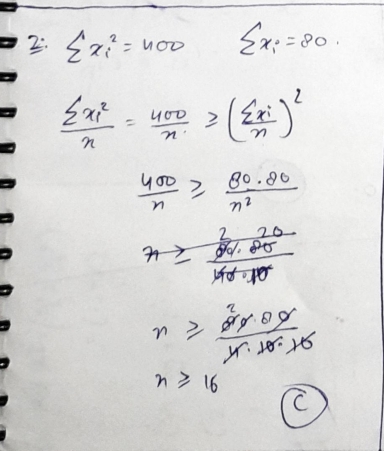 2. Σxi² = 400 Σxi = 80.
Σxi²/n = 400/n. ≥ (Σxi/n)²
400/n ≥ 80.80/n²
n ≥ 80.80/40.10 2 20
n ≥ 80.80/4.10.10 2
n ≥ 16
C